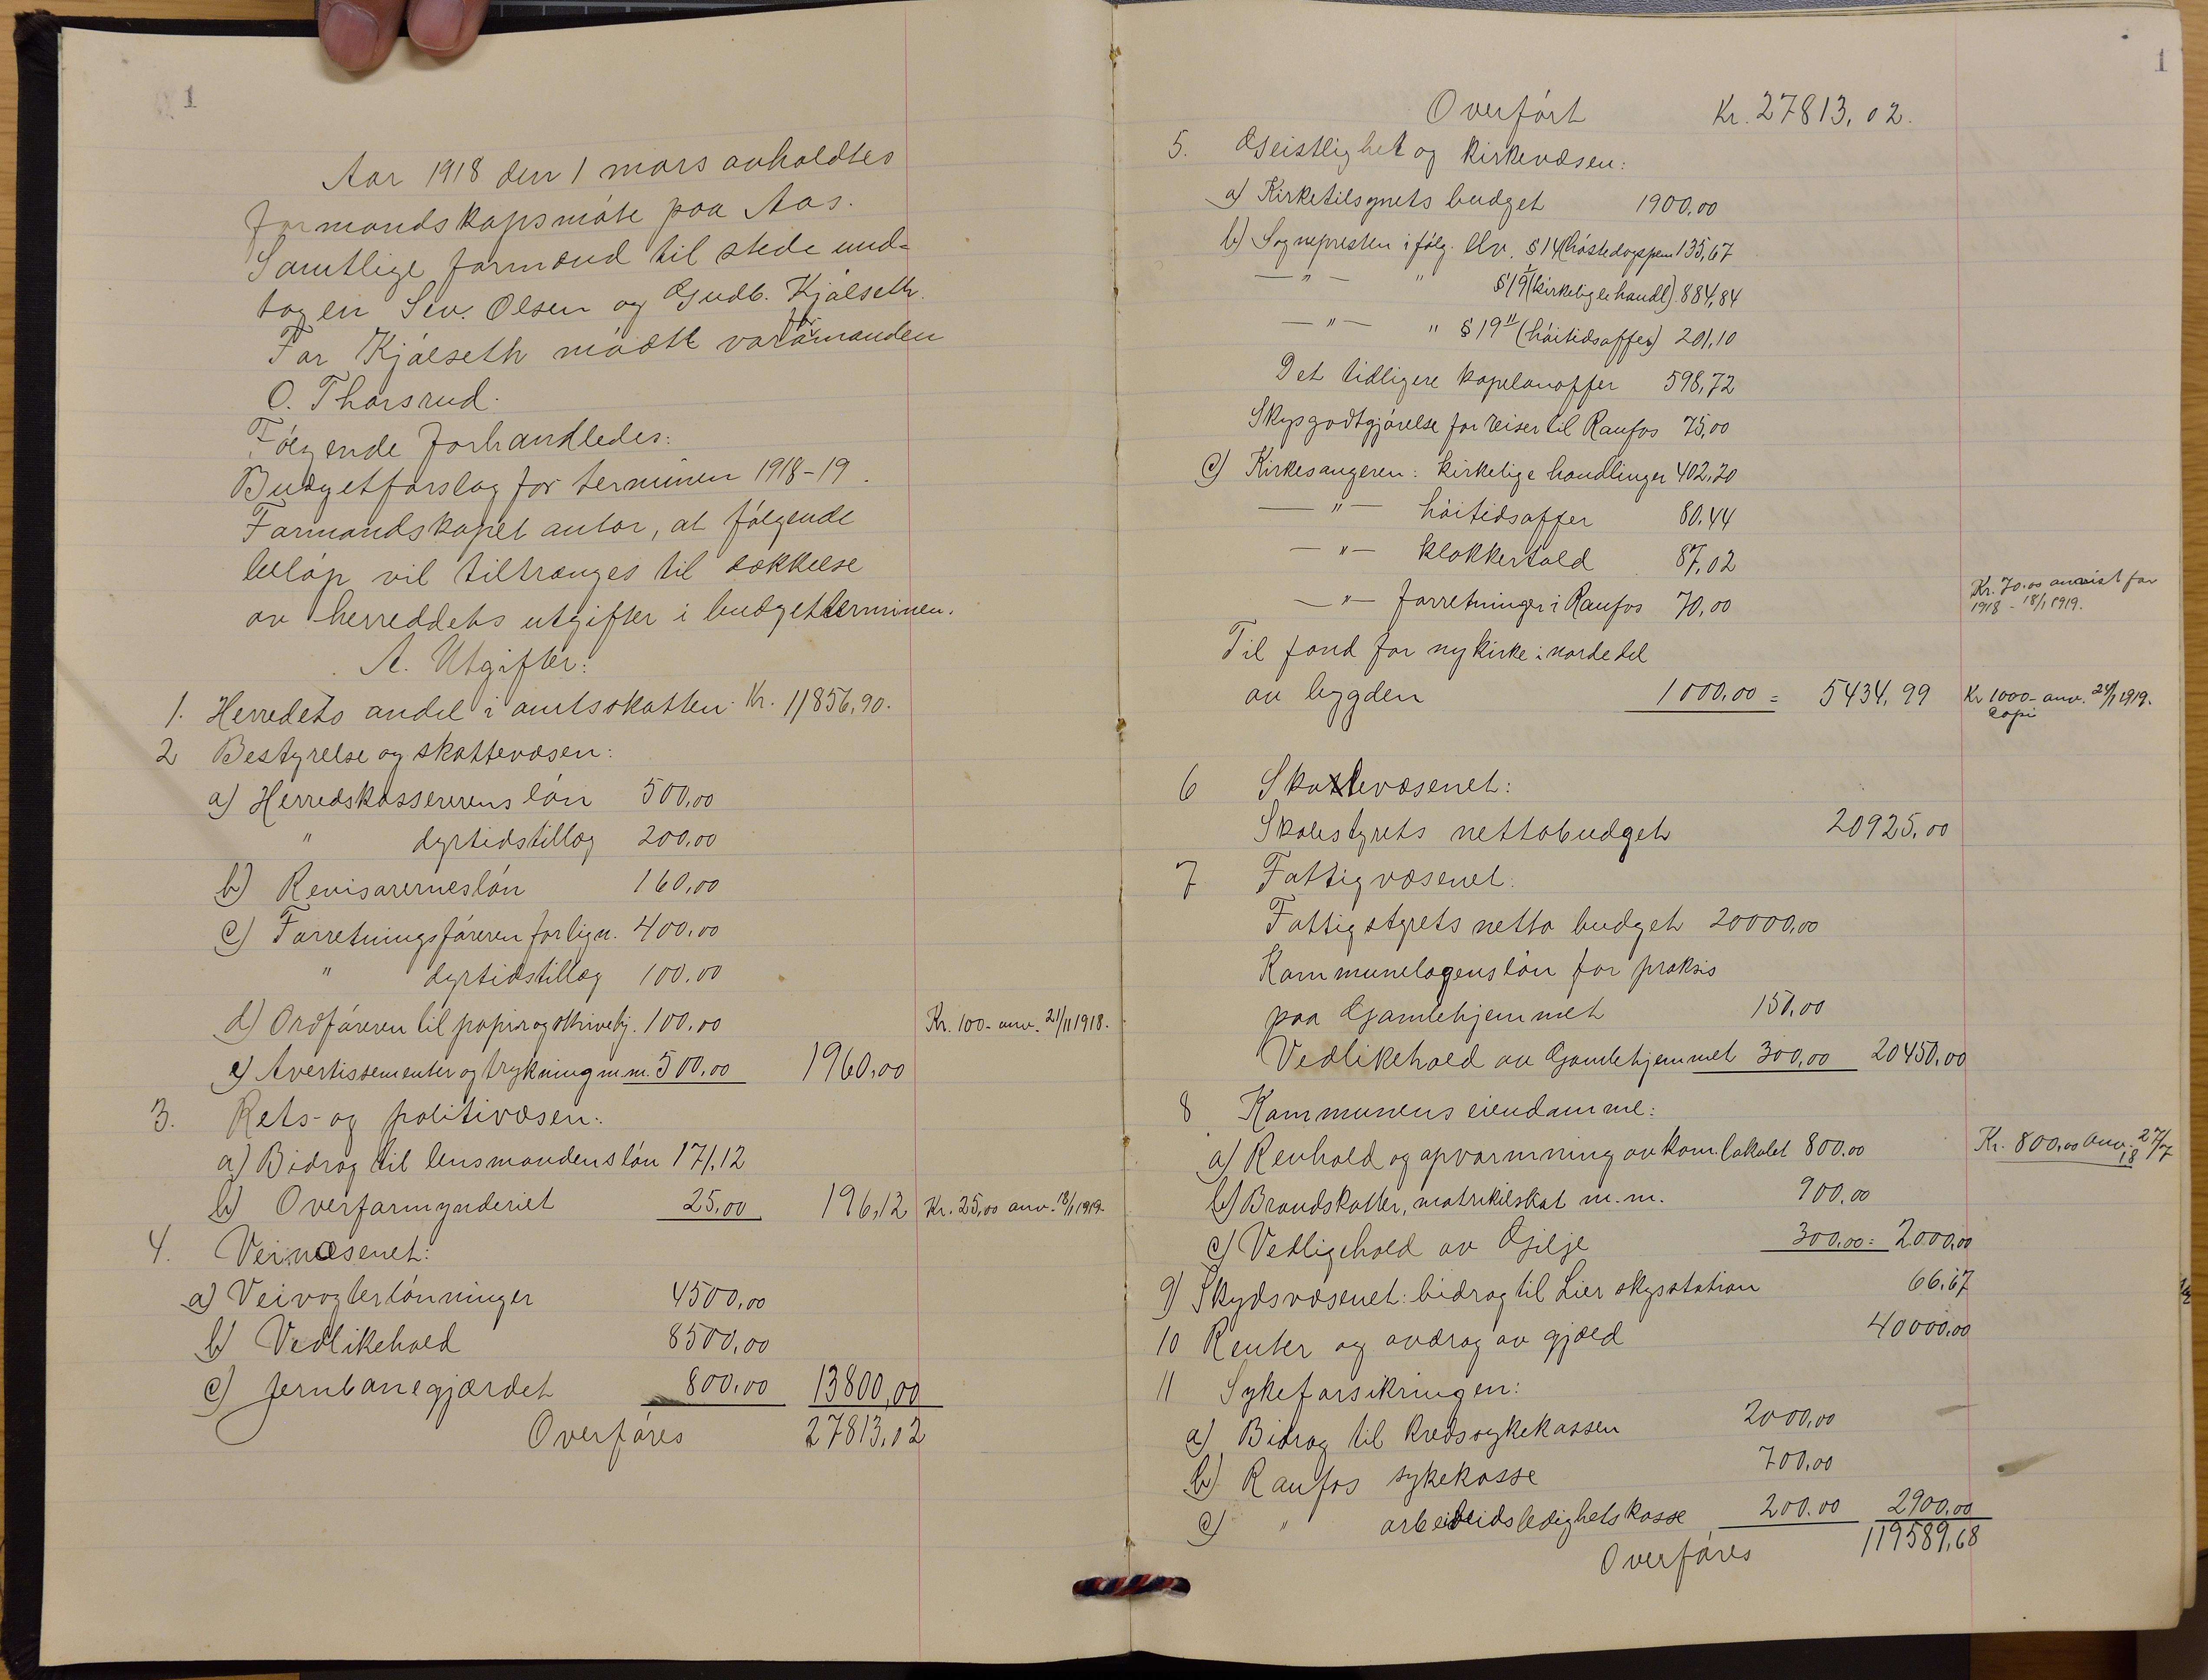 1
Aar 1918 den 1 mars avholdtes
formandskapsmøte paa Aas.
Samtlige formænd til stede und-
tagen Sev. Olsen og Gudb. Kjølseth.
For Kjølseth mødte varamanden
O. Thorsrud.
Følgende forhandledes:
Budgetforslag for terminen 1918-19.
Formandskapet antar, at følgende
beløp vil tiltrænges til dækkelse
av herreddets utgifter i budgetterminen.
A. Utgifter:
1. Herredets andel i amtsskatten Kr. 11856,90.
2 Bestyrelse og skattevæsen:
a) Herredskassererens løn 500,00
" dyrtidstillæg 200,00
b) Revisorernes løn 160,00
c) Forretningsføreren for lign. 400,00
" dyrtidstillæg 100,00
d) Ordføreren til papir og skrivehj. 100,00 Kr. 100- anv. 21/11 1918.
e) Avertissementer og trykning m.m. 500,00 1960,00
3. Rets- og politivæsen:
a) Bidrag til lensmandens løn 171,12
b) Overformynderiet 25,00 196,12 Kr. 25,00 anv. 18/1 1919.
4. Veivæsenet:
a) Veivogterlønninger 4500,00
b) Vedlikehold 8500,00
c) Jernbanegjærdet 800,00 13800,00
Overføres 27813,02
1
Overført Kr. 27813,02.
5. Geistlighet og kirkevæsen:
a) Kirketilsynets budget 1900,00
b) Sognepresten i følg. lov. § 14 (høstedagspen 135,67
—"— " § 19 I (kirkelige handl) 884,84
—"— " § 19 II (høitidsoffer) 201,10
Det tidligere kapelanoffer 598,72
Skysgodtgjørelse for reiser til Raufos 75,00
c) Kirkesangeren: kirkelige handlinger 402,20
—"— høitidsoffer 80,44
—"— klokkertold 87,02
—"— forretninger i Raufos 70,00 Kr. 70,00 anvist for
1918 - 18/1 1919.
Til fond for ny kirke i nordre del
av bygden 1000,00 = 5434,99 Kr 1000- anv. 24/1 1919.
Copi
6 Skolevæsenet:
Skolestyrets nettobudget 20925,00
7 Fattigvæsenet:
Fattigstyrets netto budget 20000,00
Kommunelægens løn for praksis
paa Gamlehjemmet 150,00
Vedlikehold av Gamlehjemmet 300,00 20450,00
8 Kommunens eiendomme:
a) Renhold og opvarmning av kom. lokalet 800,00 Kr. 800,00 anv. 27/7 18
b) Brandskatter, matrikilskat m.m. 900,00
c) Vedligehold av Gjilje 300,00 = 2000,00
9) Skydsvæsenet: bidrag til Lier skysstation 66,67
10 Renter og avdrag av gjæld 40000,00
11 Sykeforsikringen:
a) Bidrag til kredssykekassen 2000,00
b) Raufos sykekasse 700,00
c) " arbeideidsledighetskasse 200,00 2900,00
Overføres 119589,68